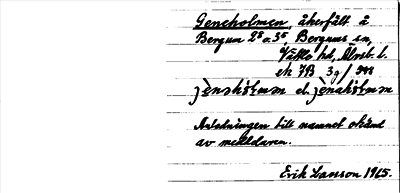 Geneholmen, åkerfält å
Bergum 2⁸ o. 3⁵, Bergums sn,
Vättle hd, Älvsb. l.
ek 7B 3g /
jènshóɫmɘn el. jènshòɫmɘn
Anledningen till namnet okänd
av meddelaren.
Erik Larsson 1965.